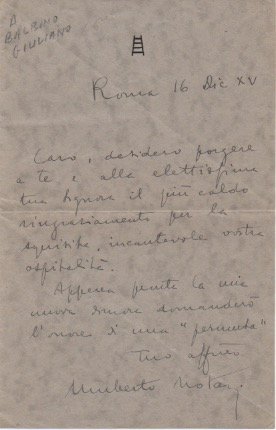 A
BALBINO
GIULIANO
Roma 16 Dic XV
Caro, desidero porgere
a te e alla elettissima
tua Signora il più caldo
ringraziamento per la
squisita, incantevole vostra
ospitalità.
Appena pronta la mia
nuova dimora domanderò
l'onore di una "permuta"
Tuo affmo
Umberto Notari